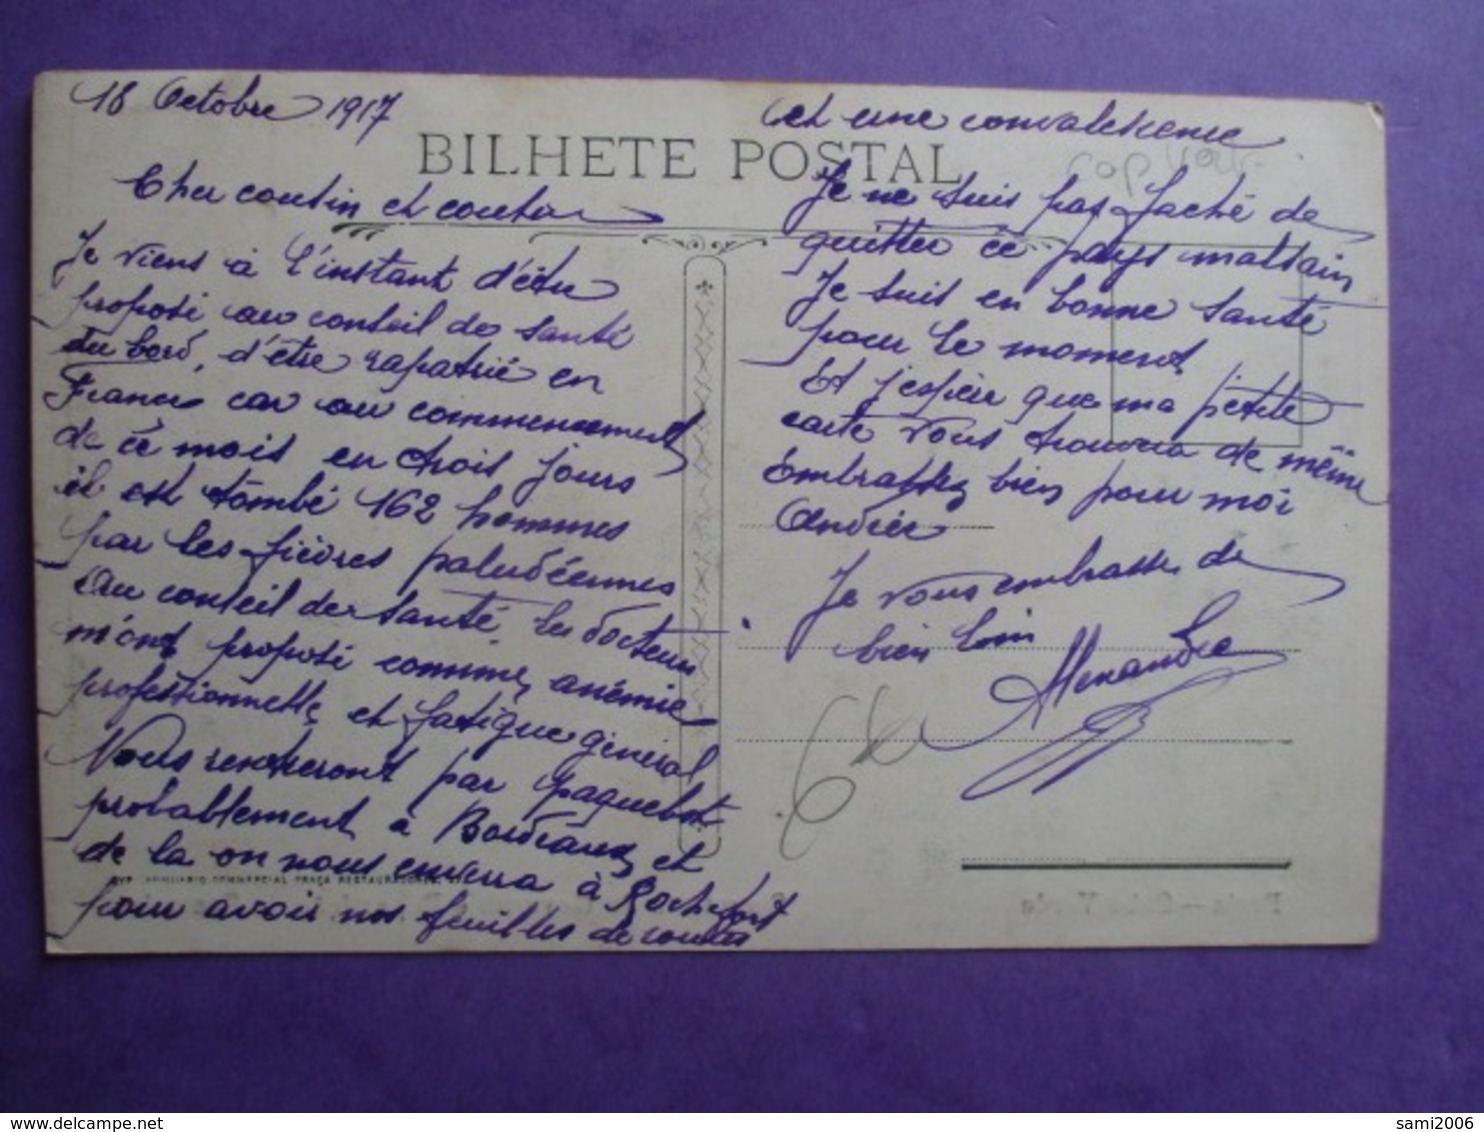 18 Octobre 1917
BILHETE POSTAL
Cher cousin et cousine
Je viens à l'instant d'être
proposé au conseil de santé
du bord, d'être rapatrié en
France car au commencement
de ce mois en trois jours
il est tombé 162 hommes
par les fièvres paludéennes
Au conseil de santé les docteurs
m'ont proposé comme, anémie
professionnelle, et fatigue général
Nous rentreront par paquebot
probablement à Bordeaux et
de la on nous enverra à Rochefort
pour avoir nos feuilles de routes
TYP. ANNUARIO COMMERCIAL PRAÇA RESTAURADORES
et une convalessence
Cap Vert
Je ne suis pas faché de
quitter ce pays malsain
Je suis en bonne santé
pour le moment
Et j'espère que ma petite
carte vous trouvera de même
Embrassez bien pour moi
Andrée
Je vous embrasse de
bien loin
Alexandre
Cabo Verde
sami2006